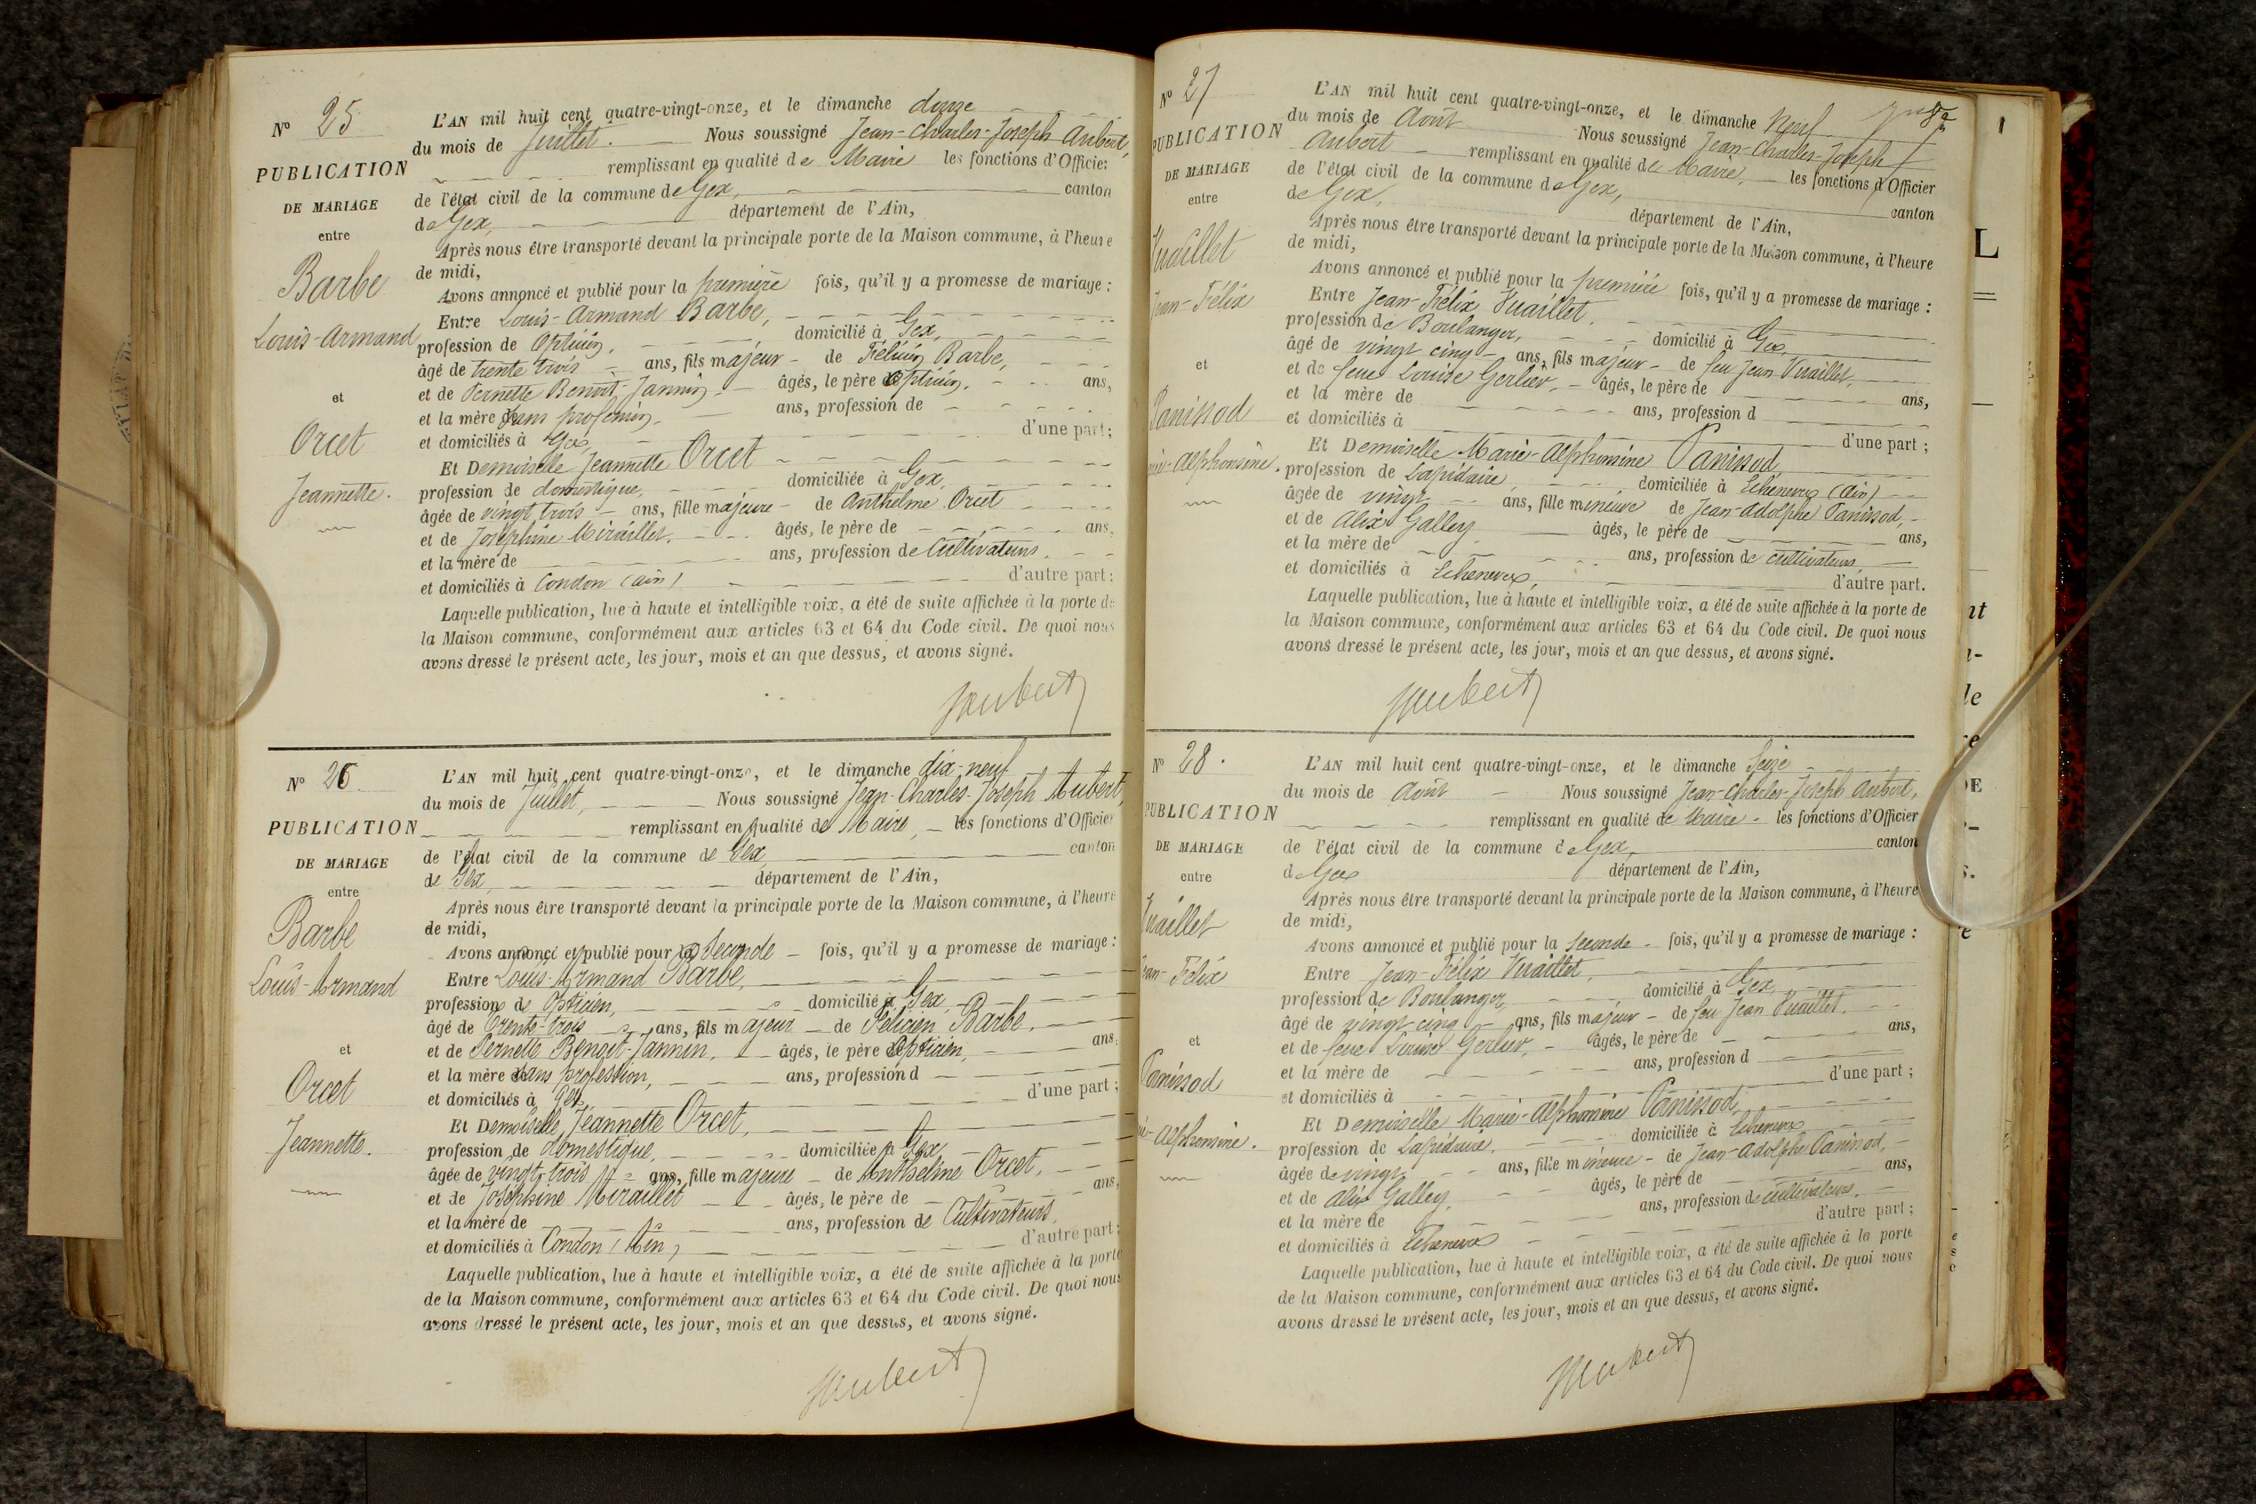 N° 25
PUBLICATION
DE MARIAGE
entre
Barbe
Louis-Armand
et
Orcet
Jeannette.
L'AN mil huit cent quatre-vingt-onze, et le dimanche douze
du mois de Juillet. Nous soussigné Jean-Charles-Joseph Aubert,
remplissant en qualité de Maire les fonctions d'Officier
de l'état civil de la commune de Gex, canton
de Gex, département de l'Ain,
Après nous être transporté devant la principale porte de la Maison commune, à l'heure
de midi,
Avons annoncé et publié pour la première fois, qu'il y a promesse de mariage :
Entre Louis-Armand Barbe,
profession de Opticien, domicilié à Gex,
âgé de trente trois ans, fils majeur de Félicien Barbe,
et de Pernette Benoit-Jannin âgés, le père Opticien, ans,
et la mère sans profession ans, profession de
et domiciliés à Gex, d'une part ;
Et Demoiselle Jeannette Orcet
profession de domestique, domiciliée à Gex,
âgée de vingt trois ans, fille majeure de Anthelme Orcet
et de Joséphine Miraillet. âgés, le père de ans,
et la mère de ans, profession de Cultivateurs.
et domiciliés à Condon (Ain) d'autre part ;
Laquelle publication, lue à haute et intelligible voix, a été de suite affichée à la porte de
la Maison commune, conformément aux articles 63 et 64 du Code civil. De quoi nous
avons dressé le présent acte, les jour, mois et an que dessus, et avons signé.
JAubert
N° 26
PUBLICATION
DE MARIAGE
entre
Barbe
Louis-Armand
et
Orcet
Jeannette.
L'AN mil huit cent quatre-vingt-onze, et le dimanche dix-neuf
du mois de Juillet, Nous soussigné Jean-Charles-Joseph Aubert,
remplissant en qualité de Maire les fonctions d'Officier
de l'état civil de la commune de Gex, canton
de Gex, département de l'Ain,
Après nous être transporté devant la principale porte de la Maison commune, à l'heure
de midi,
Avons annoncé et publié pour la Seconde fois, qu'il y a promesse de mariage :
Entre Louis-Armand Barbe,
profession de Opticien, domicilié à Gex,
âgé de Trente-trois ans, fils majeur de Félicien Barbe,
et de Pernette Benoit-Jannin, âgés, le père Opticien, ans,
et la mère sans profession, ans, profession d
et domiciliés à Gex, d'une part ;
Et Demoiselle Jeannette Orcet,
profession de domestique, domiciliée à Gex
âgée de vingt-trois ans, fille majeure de Anthelme Orcet,
et de Joséphine Miraillet âgés, le père de ans,
et la mère de ans, profession de Cultivateurs,
et domiciliés à Condon (Ain) d'autre part ;
Laquelle publication, lue à haute et intelligible voix, a été de suite affichée à la porte
de la Maison commune, conformément aux articles 63 et 64 du Code civil. De quoi nous
avons dressé le présent acte, les jour, mois et an que dessus, et avons signé.
JAubert
N° 27
PUBLICATION
DE MARIAGE
entre
Vuaillet
Jean-Félix
et
Panissod
-Alphonsine.
L'AN mil huit cent quatre-vingt-onze, et le dimanche Neuf
du mois de Août Nous soussigné Jean-Charles-Joseph
Aubert remplissant en qualité de Maire, les fonctions d'Officier
de l'état civil de la commune de Gex, canton
de Gex, département de l'Ain,
Après nous être transporté devant la principale porte de la Maison commune, à l'heure
de midi,
Avons annoncé et publié pour la première fois, qu'il y a promesse de mariage :
Entre Jean-Félix Vuaillet.
profession de Boulanger, domicilié à Gex,
âgé de vingt cinq ans, fils majeur de feu Jean Vuaillet,
et de feue Louise Gerlier, âgés, le père de ans,
et la mère de ans, profession d
et domiciliés à d'une part ;
Et Demoiselle Marie-Alphonsine Panissod,
profession de Lapidaire, domiciliée à Echenevex (Ain)
âgée de vingt ans, fille mineure de Jean-Adolphe Panissod,
et de Alix Galley. âgés, le père de ans,
et la mère de ans, profession de cultivateurs,
et domiciliés à Echenevex, d'autre part.
Laquelle publication, lue à haute et intelligible voix, a été de suite affichée à la porte de
la Maison commune, conformément aux articles 63 et 64 du Code civil. De quoi nous
avons dressé le présent acte, les jour, mois et an que dessus, et avons signé.
JAubert
N° 28.
PUBLICATION
DE MARIAGE
entre
Vuaillet
Jean-Félix
et
Panissod
-Alphonsine.
L'AN mil huit cent quatre-vingt-onze, et le dimanche Seize
du mois de Août Nous soussigné Jean-Charles-Joseph Aubert,
remplissant en qualité de Maire les fonctions d'Officier
de l'état civil de la commune de Gex, canton
de Gex département de l'Ain,
Après nous être transporté devant la principale porte de la Maison commune, à l'heure
de midi,
Avons annoncé et publié pour la Seconde fois, qu'il y a promesse de mariage :
Entre Jean-Félix Vuaillet,
profession de Boulanger, domicilié à Gex,
âgé de vingt cinq ans, fils majeur de feu Jean Vuaillet,
et de feue Louise Gerlier, âgés, le père de ans,
et la mère de ans, profession d
et domiciliés à d'une part ;
Et Demoiselle Marie-Alphonsine Panissod,
profession de Lapidaire. domiciliée à Echenevex
âgée de vingt ans, fille mineure de Jean-Adolphe Panissod,
et de Alix Galley. âgés, le père de ans,
et la mère de ans, profession de cultivateurs,
et domiciliés à Echenevex d'autre part ;
Laquelle publication, lue à haute et intelligible voix, a été de suite affichée à la porte
de la Maison commune, conformément aux articles 63 et 64 du Code civil. De quoi nous
avons dressé le présent acte, les jour, mois et an que dessus, et avons signé.
JAubert